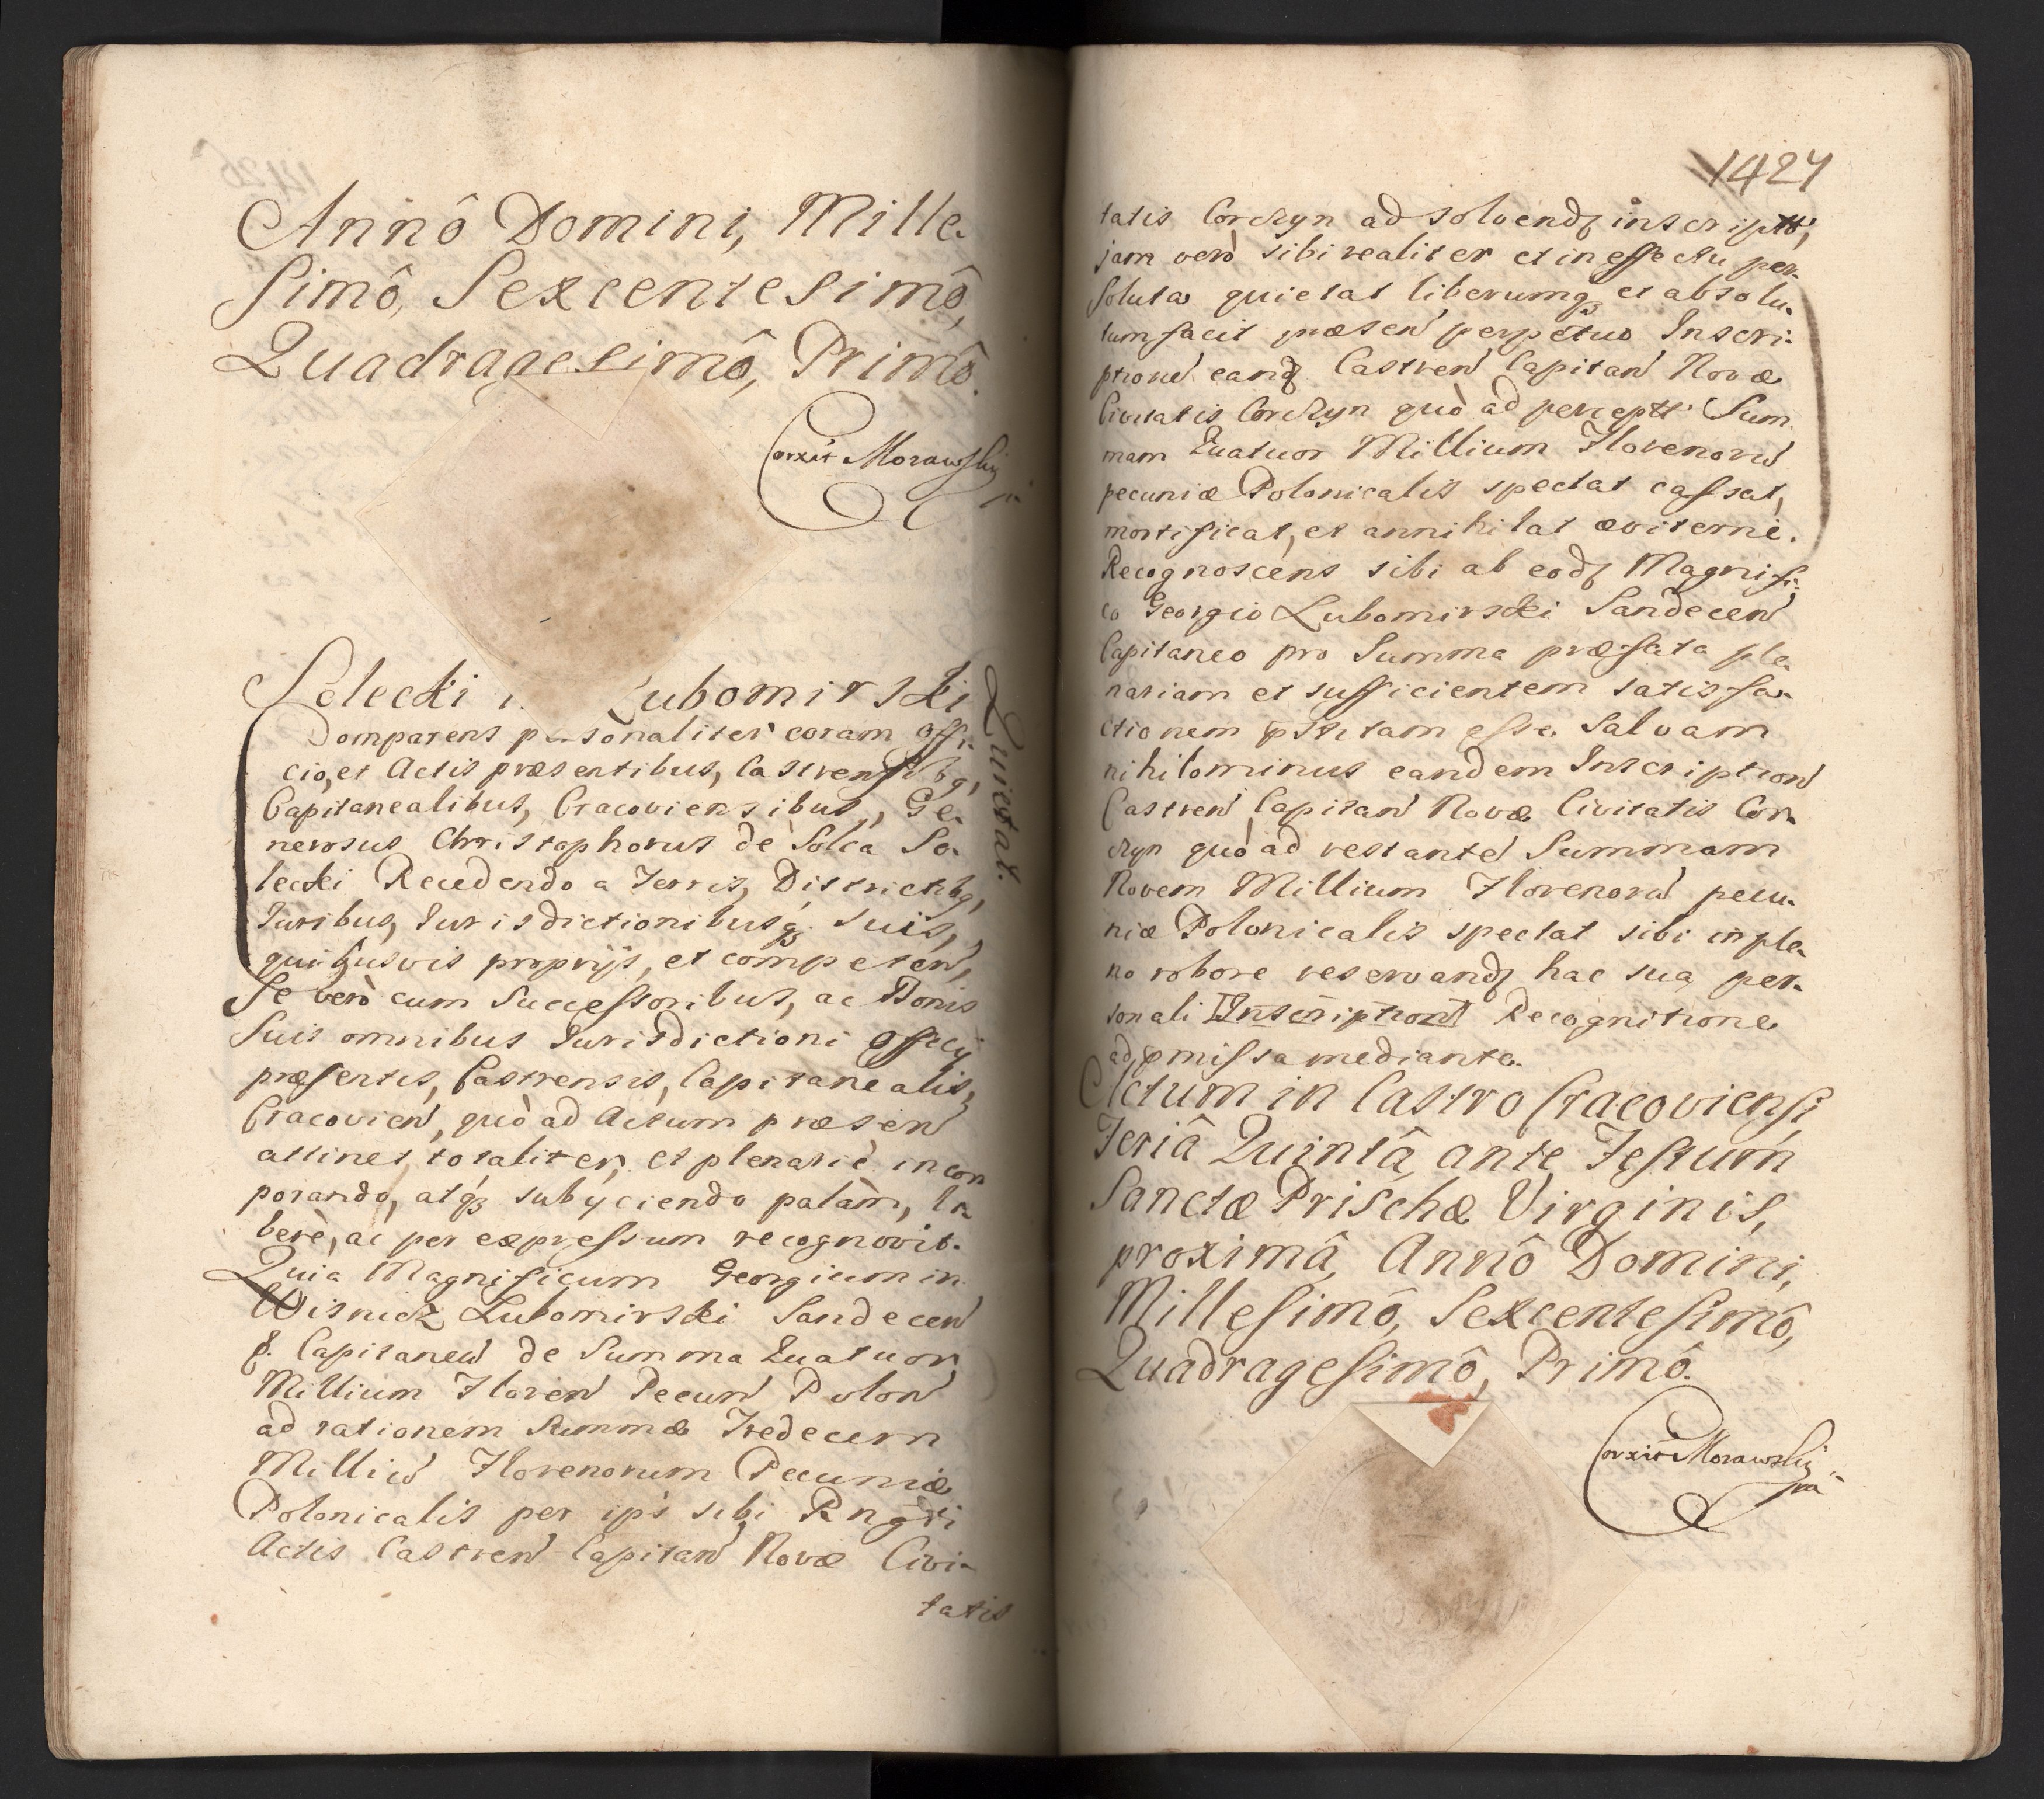 Annô Domini, Mille-
simô, Sexcentesimô,
Quadragesimô, Primô.
Corxit Morawsky
Solecki Lubomirski
Quietat.
Comparens personaliter coram Offi-
cio, et Actis præsentibus, Castrensibg,
Capitanealibus, Cracoviensibus, Ge-
nerosus Christophorus de Solca So-
lecki Recedendo a Terris, Districtibg,
Iuribus, Iurisdictionibusqz suis,
quibusvis proprijs, et competen,
Se verò cum Successoribus, ac Bonis
Suis omnibus Iurisdictioni Officij
præsentis, Castrensis, Capitanealis,
Cracovien, quò ad Actum præsen
attinet totaliter, et plenariè incor
porando, atqz subijciendo palàm, li-
berè, ac per expressum recognovit.
Quia Magnificum Georgium in
Wisnicz Lubomirski Sandecen
Capitaneu de Summa Quatuor
Millium Floren Pecun Polon
ad rationem Summæ Tredecem
Milliu Florenorum Pecuniæ
Polonicalis per ips sibi Rngsti
Actis Castren Capitan Novæ Civi-
tatis
1427
tatis Corczyn ad solvend inscriptt,
jam verò sibi realiter et in effectu per-
soluta quietat liberumqz et absolu-
tum facit præsen perpetuo Inscri-
ption eand Castren Capitan Novæ
Civitatis Corczyn quò ad perceptt Sum
mam Quatuor Millium Florenoru
pecuniæ Polonicalis spectat cassat,
mortificat, et annihilat æviternè.
Recognoscens sibi ab eod Magnifi-
co Georgio Lubomirski Sandecen
Capitaneo pro Summa præfata ple-
nariam et sufficientem satisfa-
ctionem pstitam esse. Salvam
nihilominus eandem Inscription
Castren Capitan Novæ Civitatis Cor-
czyn quò ad restante Summam
Novem Millium Florenoru pecu-
niæ Polonicalis spectat sibi in ple-
no robore reservand hac sua per-
sonali Inscription Recognitione
ad pmissa mediante.
Actum in Castro Cracoviensi
Feriâ Quintâ ante Festum
Sanctæ Prischæ Virginis,
proximâ, Annô Domini,
Millesimô, Sexcentesimô,
Quadragesimô, Primô.
Corxit Morawsky